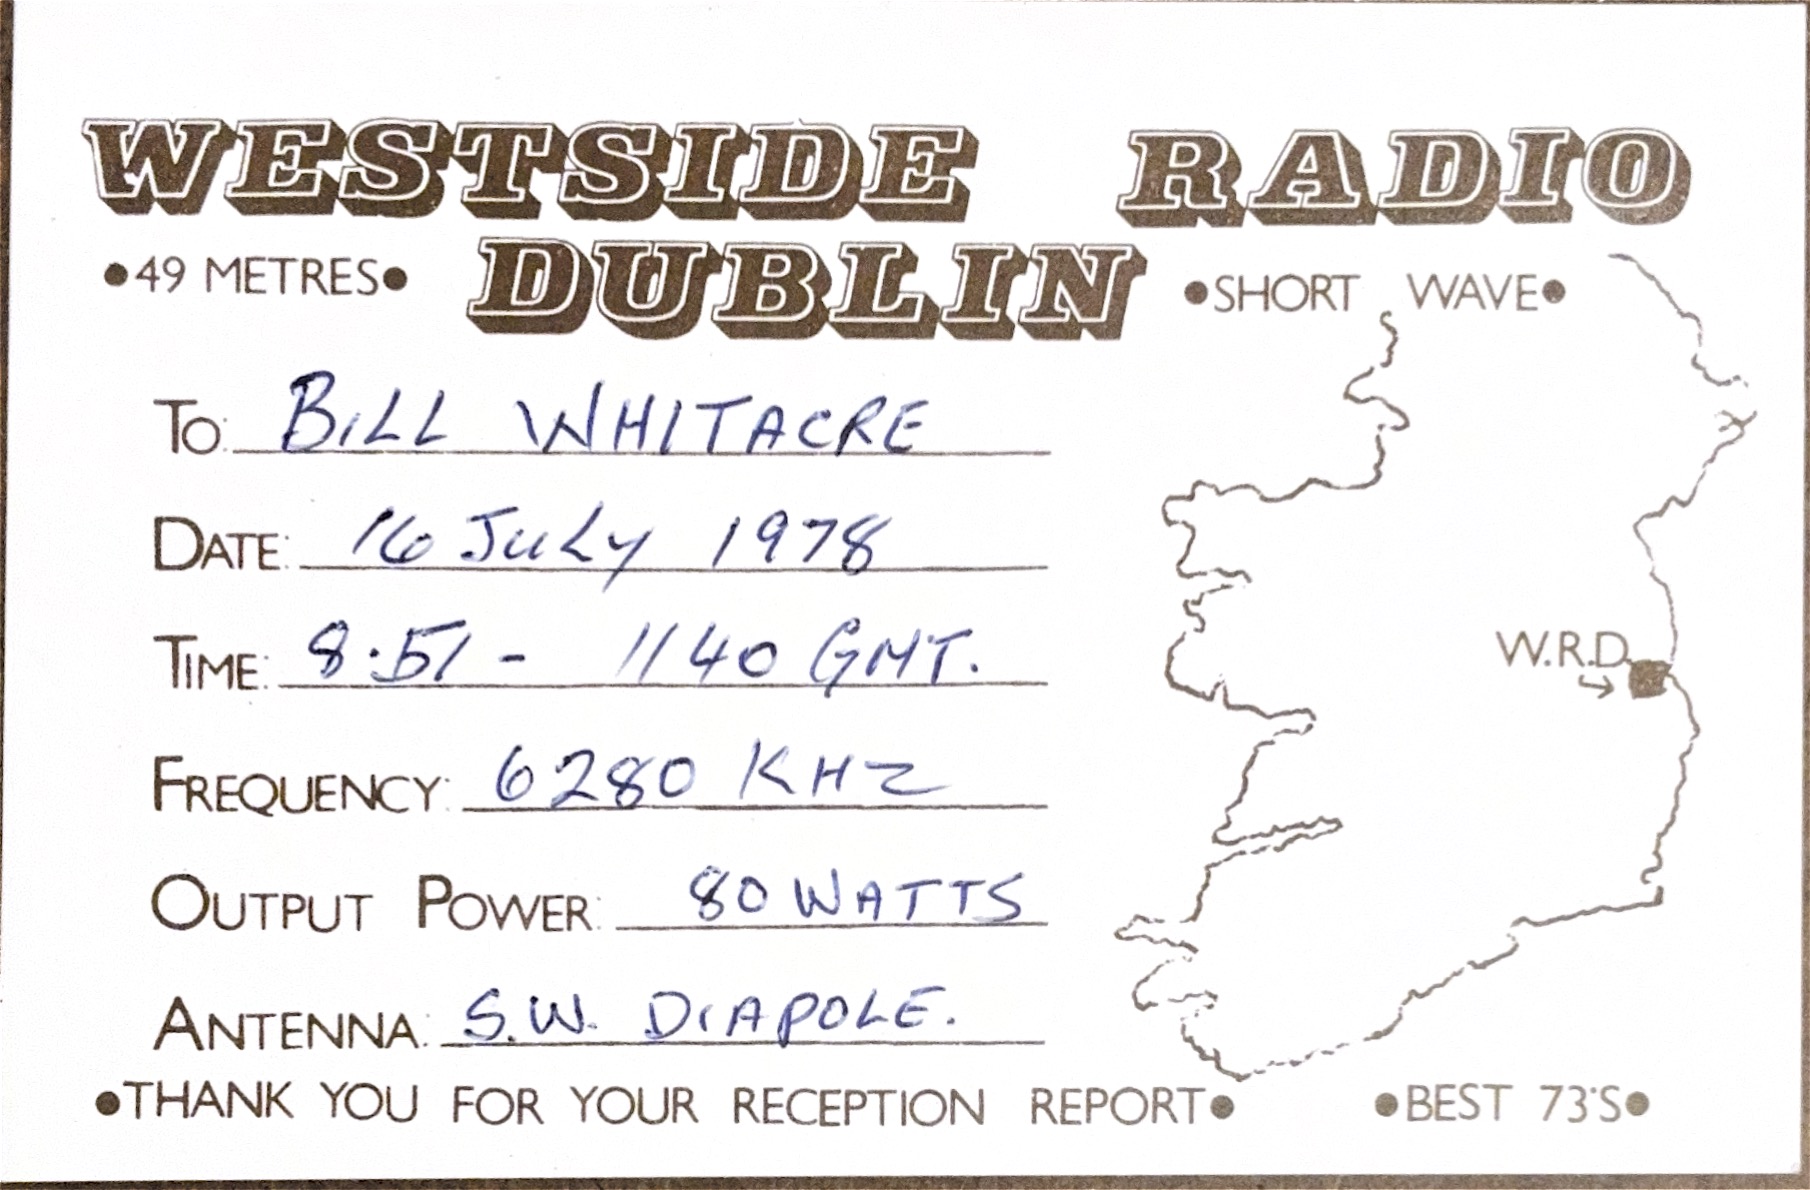 WESTSIDE RADIO
•49 METRES• DUBLIN •SHORT WAVE•
TO: BILL WHITACRE
DATE: 16 JULY 1978
TIME: 8.51 - 1140 GMT.
W.R.D.
FREQUENCY: 6280 KHZ
OUTPUT POWER: 80 WATTS
ANTENNA: S.W. DIAPOLE.
•THANK YOU FOR YOUR RECEPTION REPORT• •BEST 73'S•